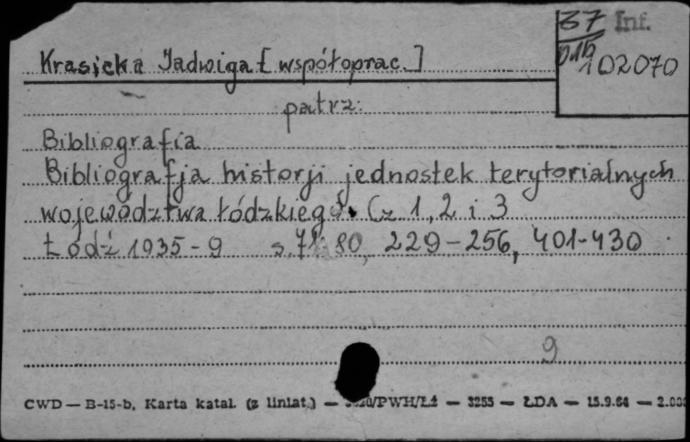 37 Inf.
015
102070
Krasicka Jadwiga [współoprac.]
patrz:
Bibliografia
Bibliografja historji jednostek terytorialnych
województwa łódzkiego. Cz 1, 2 i 3
Łódź 1935-9 s. 71-80, 229-256, 401-430
9
CWD — B-15-b, Karta katal. (z liniat.) — /PWH/Łź — 3255 — ŁDA — 15.9.64 — 2.000